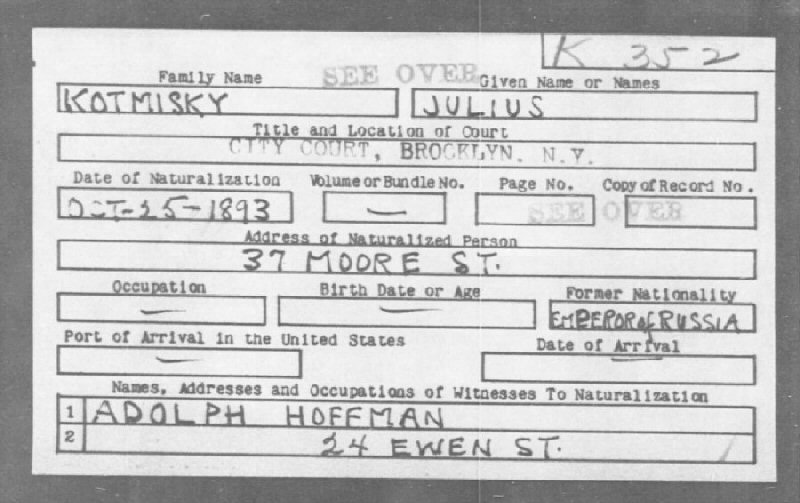 K 352
SEE OVER
Family Name Given Name or Names
KOTMISKY JULIUS
Title and Location of Court
CITY COURT, BROOKLYN. N.Y.
Date of Naturalization Volume or Bundle No. Page No. Copy of Record No.
OCT-25-1893 — SEE OVER
Address of Naturalized Person
37 MOORE ST.
Occupation Birth Date or Age Former Nationality
— — EMPEROR of RUSSIA
Port of Arrival in the United States Date of Arrival
— —
Names, Addresses and Occupations of Witnesses To Naturalization
1 ADOLPH HOFFMAN
2 24 EWEN ST.